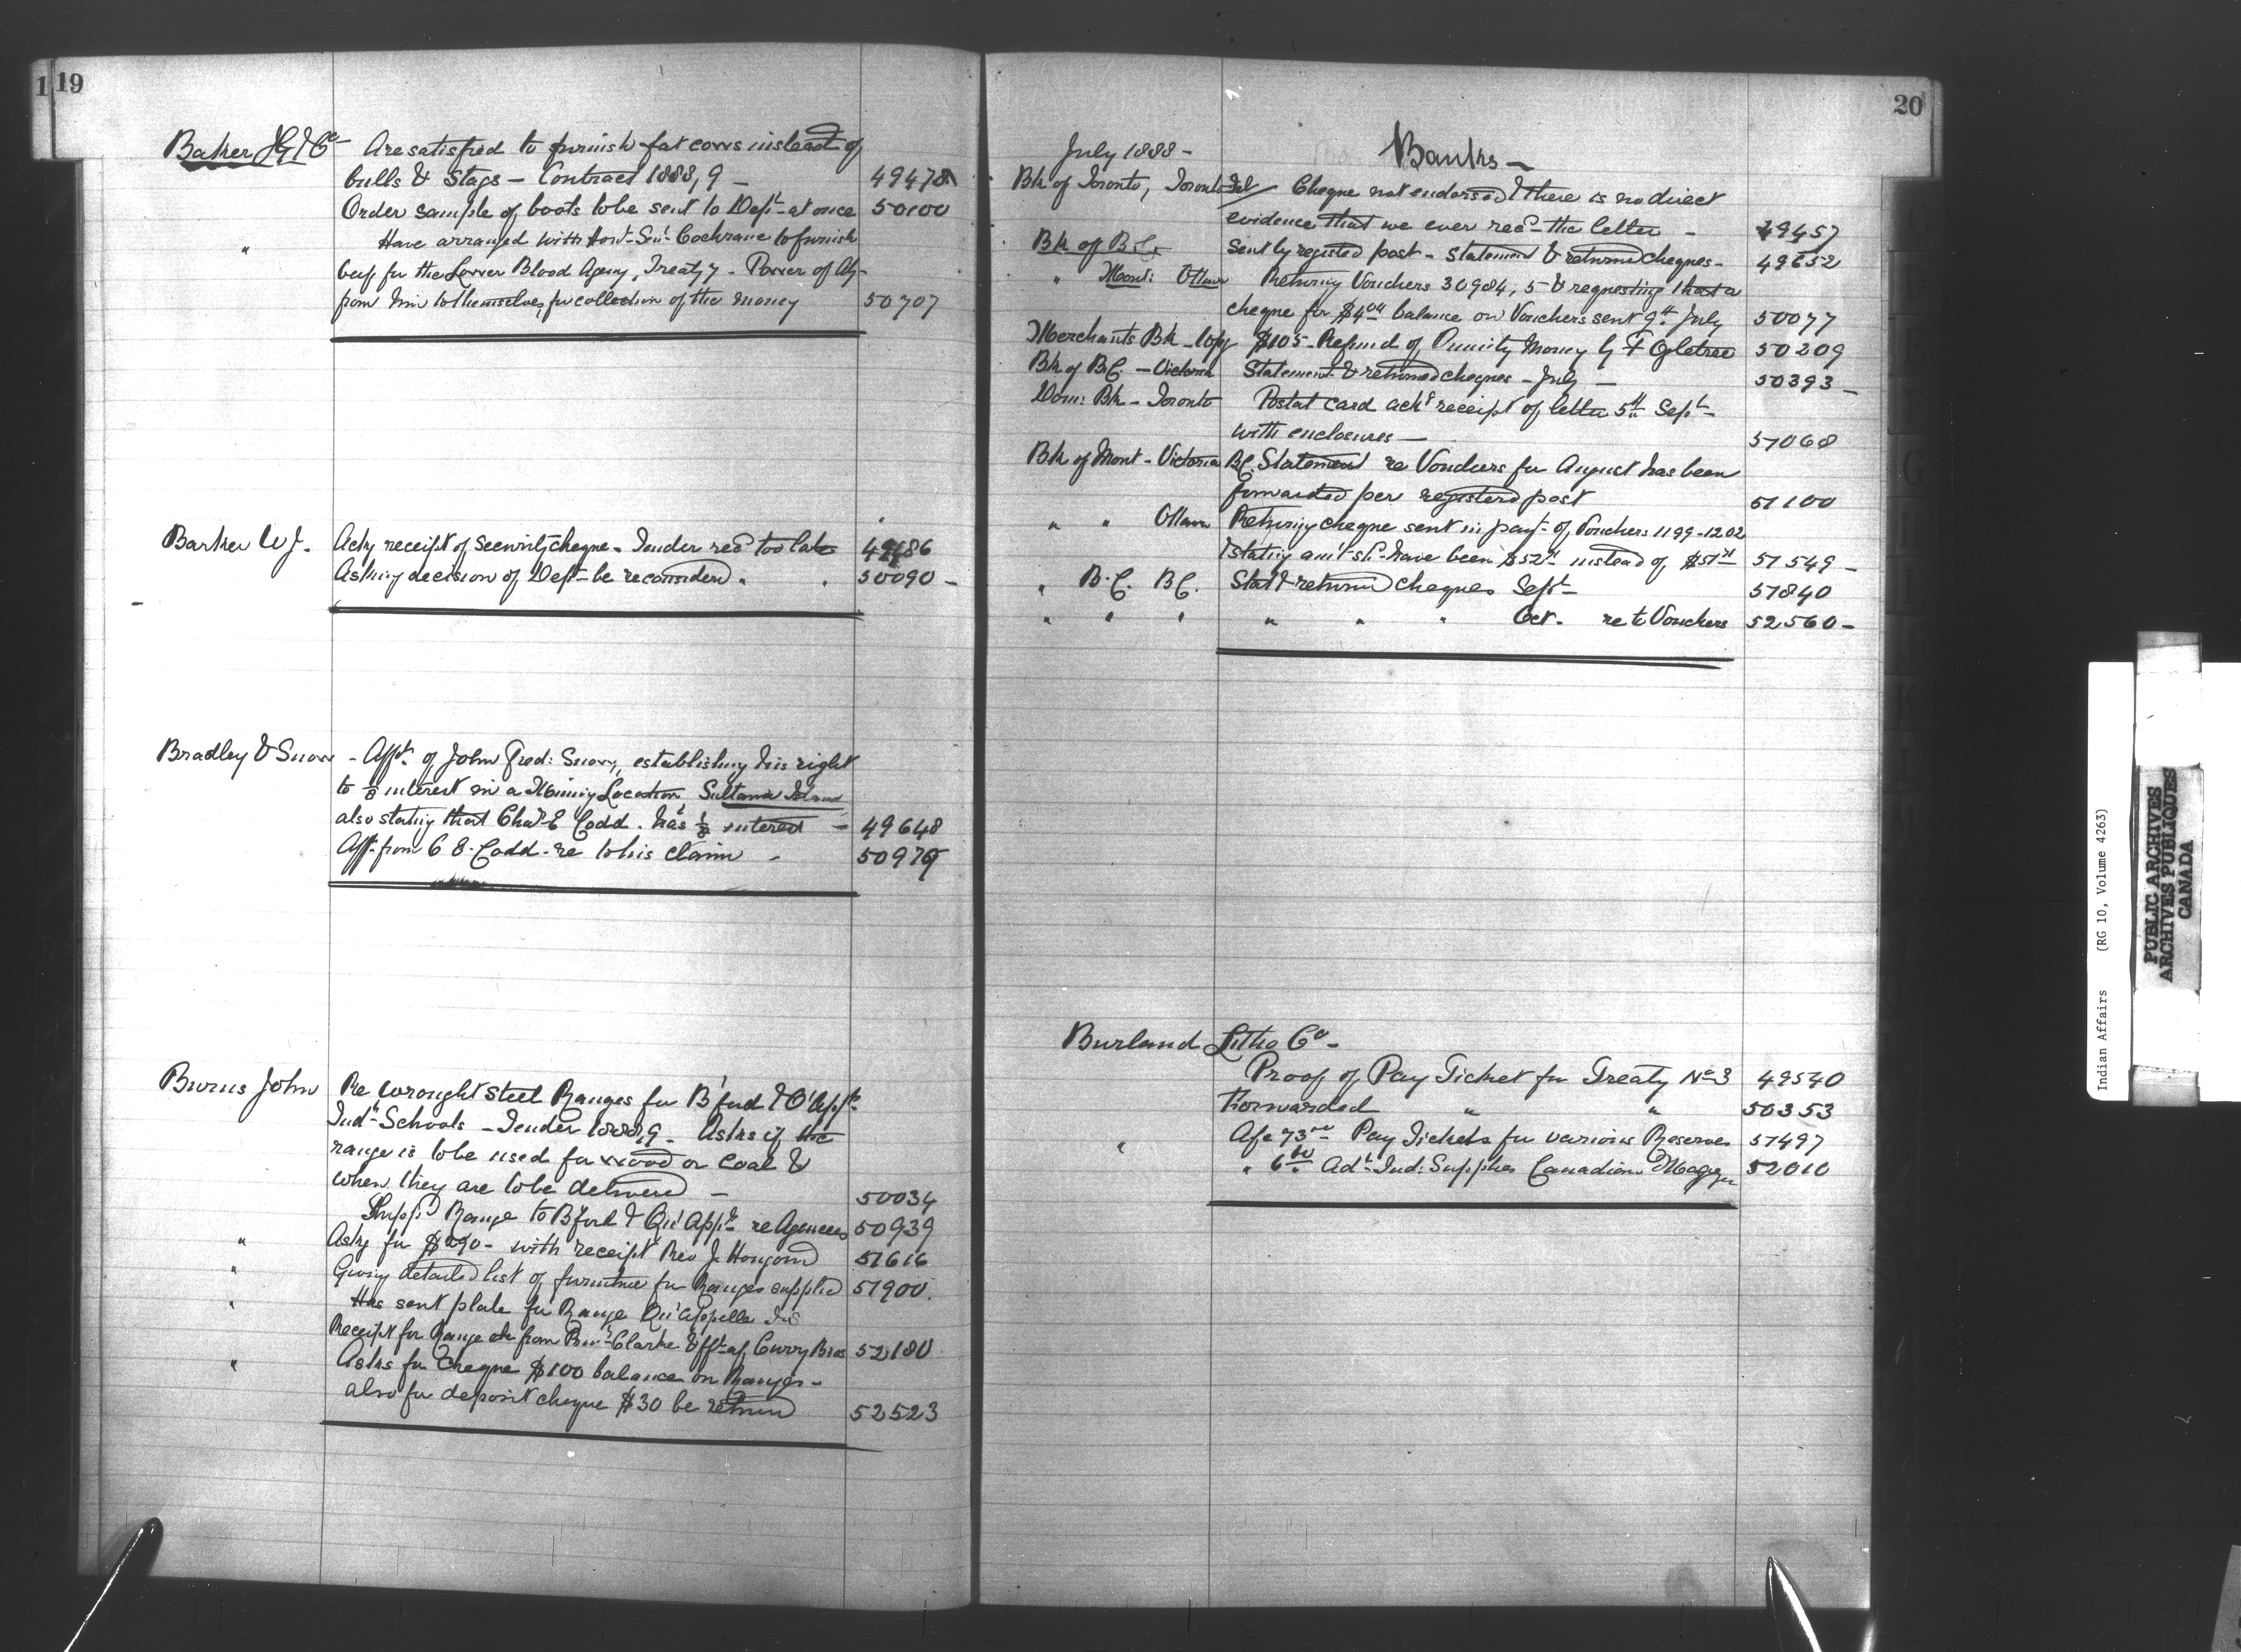 1 19
Baker J G & Co - Are satisfied to furnish fat cows instead of
bulls & stags - Contract 1888,9 - 49478
Order sample of boots to be sent to Dept at once 50100
" Have arranged with Hon. Sen. Cochrane to furnish
beef for the Lower Blood Agency, Treaty 7 - Power of Aty
from him to themselves, for collection of the money 50707
Barker W J. Ackg receipt of security cheque - Tender recd too late 49686
Asking decision of Dept be reconsidered " " 50090 -
Bradley & Snow - Afft of John Fred: Snow, establishing his right
to 1/8 interest in a Mining Location Sultana Island
also stating that Chas E Codd. has 1/8 interest - 49648
Afft from C E. Codd - re to his claim - 50979
Burns John Re wrought steel Ranges for B'ford & Q'App
Indl Schools - Tender 1888,9 - Asks if the
range is to be used for wood or coal &
when they are to be delivered - 50034
Shippd Range to B'ford & Qu'App re Agencies 50939
" Askg for $290 - with receipt Rev J. Hougond 51616
" Giving detailed list of furniture for Ranges supplied 51900.
" Has sent plate for Range Qu'Appelle Ind
Receipt for Range from Clarke & Curry Bros 52180
" Asks for cheque $100 balance on Ranges -
also for deposit cheque $30 be returned 52523
20
July 1888 - Banks -
Bk of Toronto, Toronto Cheque not endorsed & there is no direct
evidence that we ever recd the letter - 49457
Bk of B.C. Sent by registed post - Statement & returned cheques - 49652
" Mont: Ottawa Returning Vouchers 30984, 5 & requesting that a
cheque for $4 balance on Vouchers sent 9th July 50077
Merchants Bk - $105 - Refund of Annuity Money G F Ogletree 50209
Bk of B.C. - Victoria Statement & returned cheques - July - 50393 -
Dom: Bk - Toronto Postal card ackg receipt of letter 5th Sept -
with enclosures - 51068
Bk of Mont - Victoria BC. Statement re Vouchers for August has been
forwarded per registered post 51100
" " Ottawa Returning cheque sent in payt of Vouchers 1199-1202
& stating amt shd have been $52 instead of $51 51549 -
" B.C. BC. Stat & returned cheques Sept - 51840
" " " " " " Oct. re to Vouchers 52560 -
Burland Litho Co -
Proof of Pay Ticket for Treaty No 3 49540
Forwarded " " 50353
" Afc 73 Pay Tickets for various Reserves 51497
" 6 Adt Ind: Supplies Canadian 52010
Indian Affairs (RG 10, Volume 4263)
PUBLIC ARCHIVES
ARCHIVES PUBLIQUES
CANADA